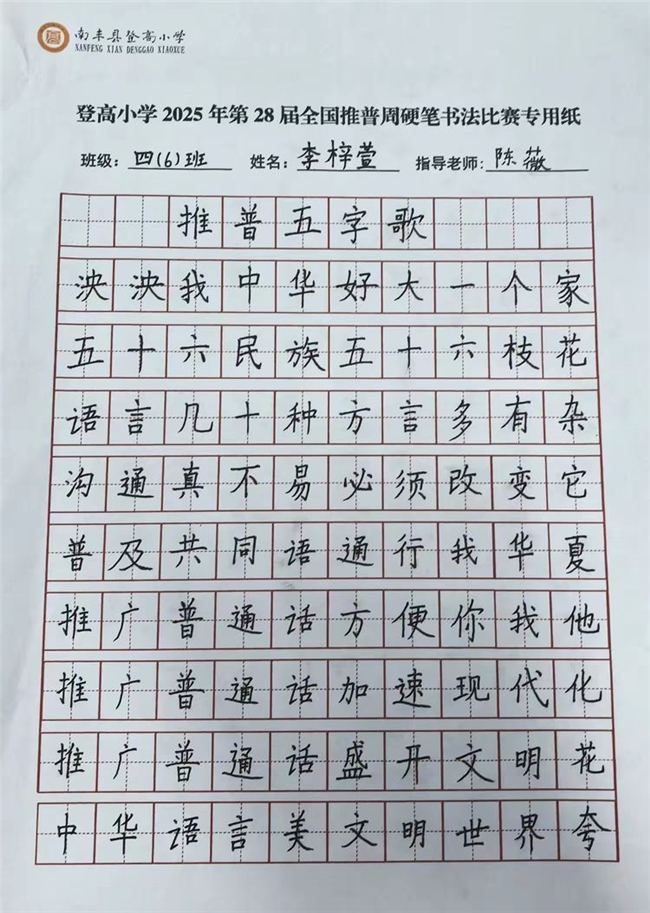 南丰县登高小学
NANFENG XIAN DENGGAO XIAOXUE
登高小学 2025 年第 28 届全国推普周硬笔书法比赛专用纸
班级: 四(6)班 姓名: 李梓萱 指导老师: 陈薇
推普五字歌
泱泱我中华好大一个家
五十六民族五十六枝花
语言几十种方言多有杂
沟通真不易必须改变它
普及共同语通行我华夏
推广普通话方便你我他
推广普通话加速现代化
推广普通话盛开文明花
中华语言美文明世界夸